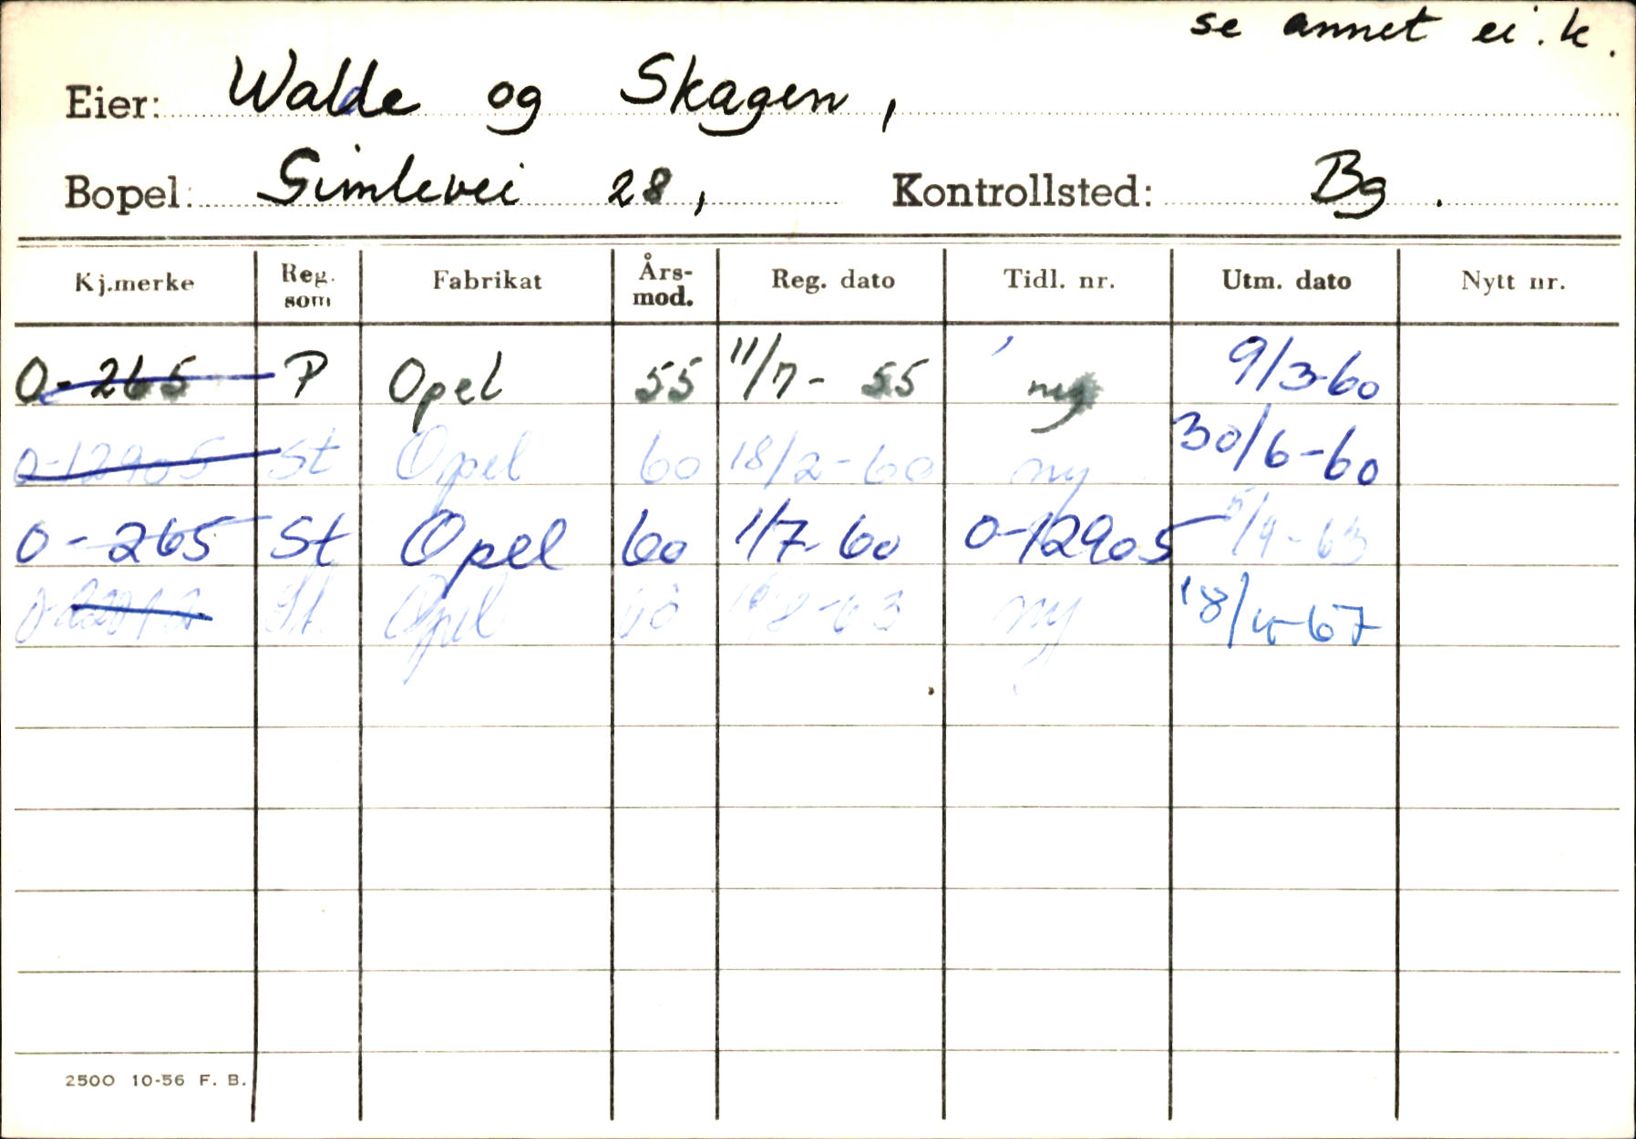 se annet ei.k.
Eier: Walde og Skagen,
Bopel: Gimlevei 28, Kontrollsted: Bg.
Kj.merke Reg. som Fabrikat Års-mod. Reg. dato Tidl. nr. Utm. dato Nytt nr.
O-265 P Opel 55 11/7-55 ny 9/3-60
O-12905 St Opel 60 18/2-60 ny 30/6-60
O-265 St Opel 60 1/7-60 O-12905 5/9-63
St. Opel ny 18/4-67
2500 10-56 F. B.